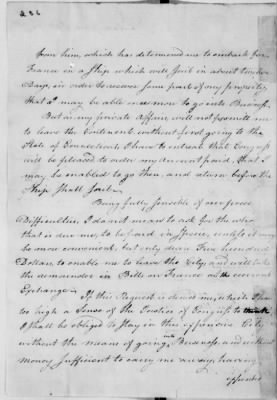 from him, which has determined me to embark for
France in a Ship which will Sail in about twelve
Days, in order to recover some part of my property
that I may be able in some to go into Business.
But as my private Affairs will not permit me
to leave the Continent without first going to the
State of Connecticut, I have to entreat that Congress
will be pleased to order my Account paid, that I
may be enabled to go there, and return before the
Ship Shall Sail.
Being fully sensible of our
Difficulties, I do not mean to ask for the whole
that is due me, to be paid in Specie, unless it may
be more convenient, but only desire Five hundred
Dollars to enable me to leave the City, and will take
the remainder in Bills on France at the current
Exchange.
If this Request is denied me, which I have
too high a Sense of the Justice of Congress to think
I shall be obliged to Stay in this expensive City
without the means of going into Business, and without
money sufficient to carry me away, having
expended